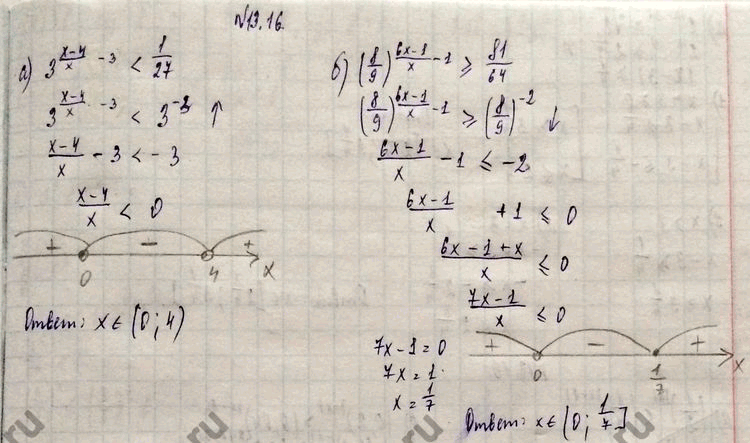 №13.16.
а) 3^((x-4)/x - 3) < 1/27
3^((x-4)/x - 3) < 3^(-3) ↑
(x-4)/x - 3 < -3
(x-4)/x < 0
+ - +
0 4 x
Ответ: x ∈ (0; 4)
б) (8/9)^((6x-1)/x - 1) ≥ 81/64
(8/9)^((6x-1)/x - 1) ≥ (8/9)^(-2) ↓
(6x-1)/x - 1 ≤ -2
(6x-1)/x + 1 ≤ 0
(6x-1+x)/x ≤ 0
(7x-1)/x ≤ 0
7x-1=0
7x=1
x=1/7
+ - +
0 1/7 x
Ответ: x ∈ (0; 1/7]
ru
ru
ru